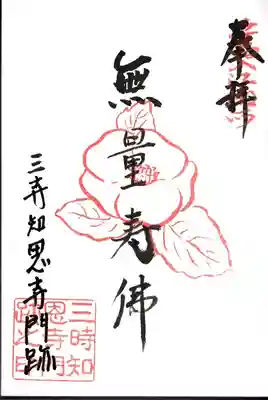 奉拝
無量寿佛
三時知恩寺門跡
三時知
恩寺門
跡之印